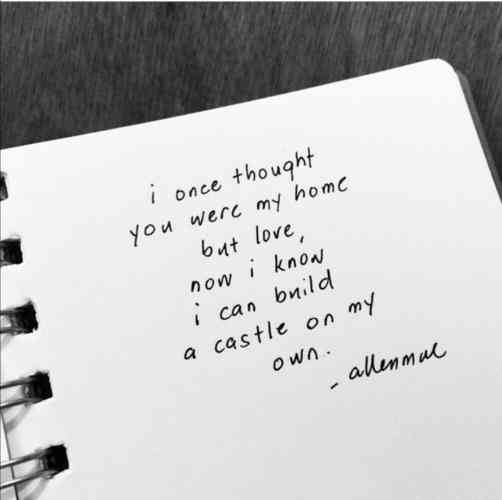 i once thought
you were my home
but love,
now i know
i can build
a castle on my
own.
- allenmul